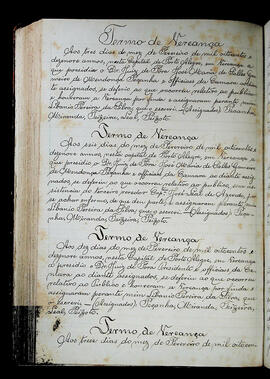 Termo de Vereança
Aos tres dias do mez de Fevereiro de mil oitocentos e
dezenove annos, nesta Capital de Porto Alegre, em Vereança a
que presidio o Dr. Juiz de Fóra José Maria de Salles Gameiro
de Mendonça Peçanha e officiaes da Camara abaixo
assignados, se deferio ao que occorreu relativo ao publico
e houveram a Vereança por finda e assignaram perante mim
Libanio Pereira da Silva, que o escrevi (Assignados) Peçanha,
Miranda, Teixeira, Leal, Peixoto.
Termo de Vereança
Aos seis dias do mez de Fevereiro de mil oitocentos e
dezenove annos, nesta Capital de Porto Alegre, em Vereança a
que presidio o Dr. Juiz de Fóra José Maria de Salles Gameiro
de Mendonça Peçanha e officiaes da Camara abaixo assignados,
se deferio ao que occorreu relativo ao publico, em
se achar enfermo, de que deu parte, e assignaram perante mim
Libanio Pereira da Silva, que o escrevi (Assignados)
Miranda, Teixeira,
Termo de Vereança
Aos dez dias do mez de Fevereiro de mil oitocentos e
dezenove annos, nesta Capital de Porto Alegre, em Vereança
o Dr. Juiz de Fóra Presidente e officiaes da Camara
ao diante assignados, se deferio ao que occorreu
relativo ao Publico e houveram a Vereança por finda e
assignaram perante mim Libanio Pereira da Silva, que
o escrevi (Assignados) Peçanha, Miranda, Teixeira,
Leal, Peixoto.
Termo de Vereança
Aos treze dias do mez de Fevereiro de mil oitocentos